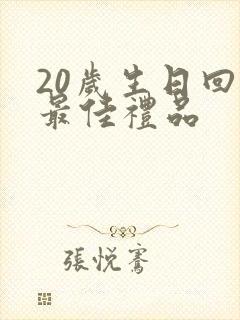 20歲生日回
最佳禮品
張悅騫